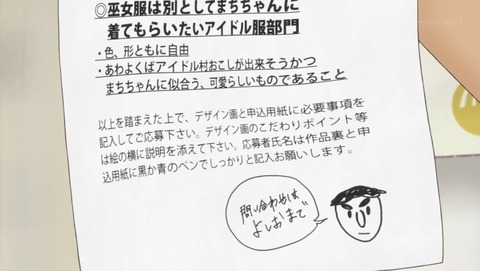 ◎巫女服は別としてまちちゃんに
着てもらいたいアイドル服部門
・色、形ともに自由
・あわよくばアイドル村おこしが出来そうかつ
まちちゃんに似合う、可愛らしいものであること
以上を踏まえた上で、デザイン画と申込用紙に必要事項を
記入してご応募下さい。デザイン画のこだわりポイント等
は絵の横に説明を添えて下さい。応募者氏名は作品裏と申
込用紙に黒か青のペンでしっかりと記入お願いします。
問い合わせは
よしおまで